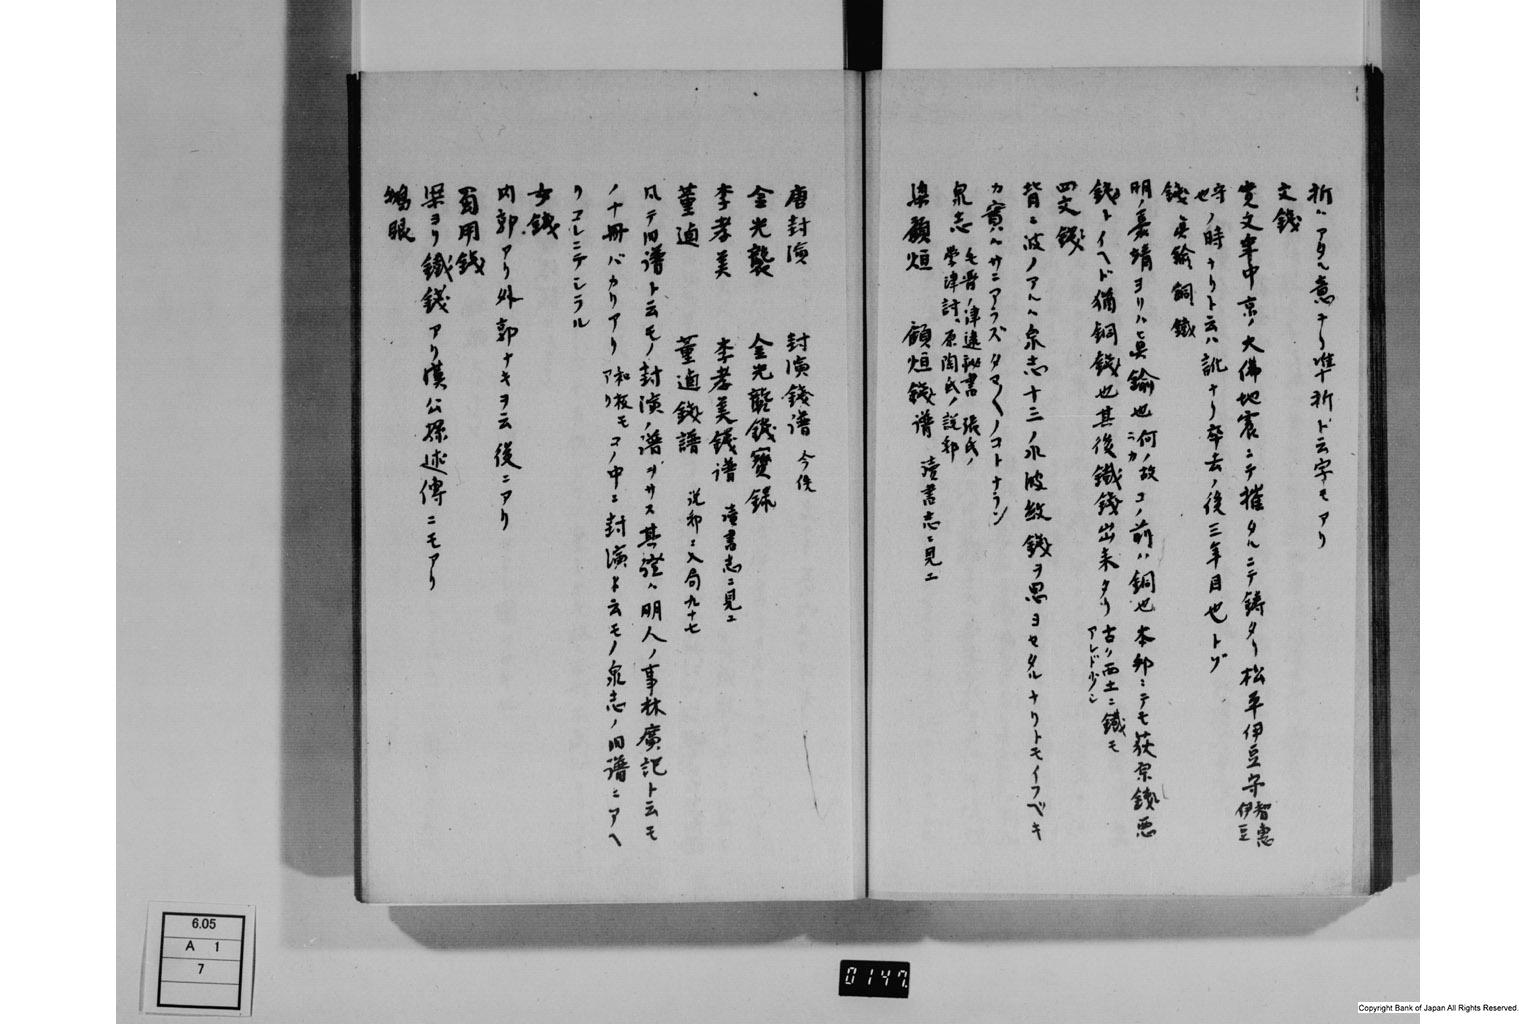 折ハアタル意ナリ準十折ド云字モアリ
文錢
寛文年中京ノ大佛地震ニテ摧タルニテ鋳タリ松平伊豆守智恵伊豆
守ノ時ナリト云ハ訛ナリ卒去ノ後三年目也トゾ
也
錢真鍮銅鐵
明ノ嘉靖ヨリハ真鍮也何ノ故ニカコノ前ハ銅也本邦ニテモ荻原錢悪
錢トイヘド猶銅錢也其後鐵錢出来タリ古ク西土ニ鐵モアレド少シ
四文錢
背ニ波ノアルハ泉志十三ノ水波紋錢ヲ思ヨセタルナリトモイフベキ
カ實ハサニアラズタマ〱ノコトナラン
泉志 毛晋ノ津逮秘書 張氏ノ学津討原陶氏ノ説郛
梁顧烜 顧烜錢譜 讀書志ニ見エ
唐封演 封演錢譜 今佚
金光襲 金光襲錢寶録
李孝美 李孝美錢譜 讀書志ニ見エ
董逌 董逌錢譜 説郛ニ入局九十七
凡テ旧譜ト云モノ封演ノ譜ヲサス其證ハ明人ノ事林廣記ト云モ
ノ十冊バカリアリ和板モアリコノ中ニ封演ト云モノ泉志ノ旧譜ニアヘ
リコレニテシラル
女錢
内郭アリ外郭ナキヲ云後ニアリ
蜀用錢
梁ヨリ鐵錢アリ漢公孫述傳ニモアリ
鵝眼
6.05
A 1
7
0147
Copyright Bank of Japan All Rights Reserved.